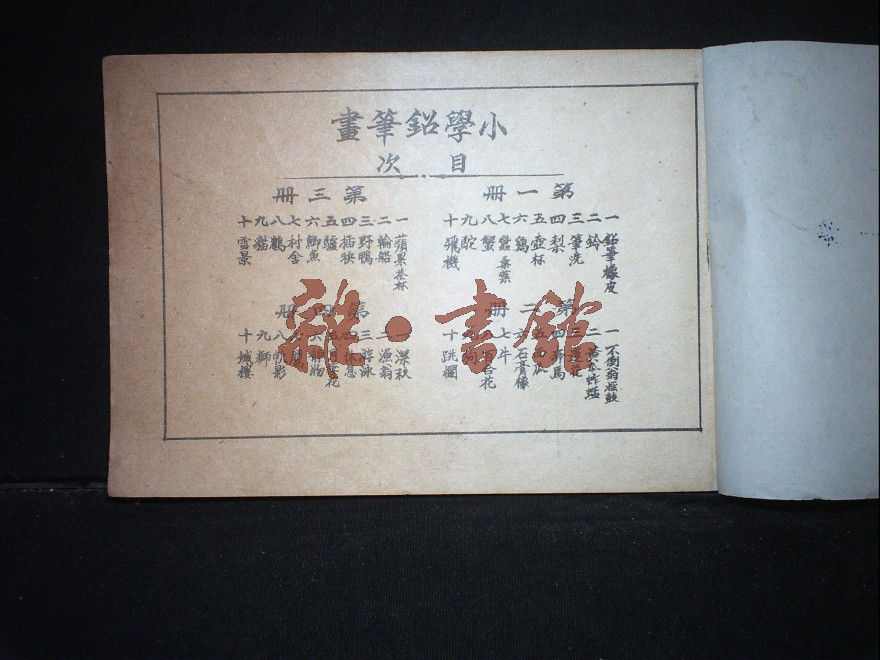 小學鉛筆畫
目次
第一册
一 鉛筆橡皮
二 鈴
三 筆洗
四 梨
五 壺杯
六 鷄
七 蠶桑葉
八 蟹
九 駝
十 飛機
第二册
一 不倒翁搖鼓
二 黃瓜蚱蜢
三 蓮花
四 奔馬
五 瓜
六 石膏像
七 牛
八 百合花
九 狗
十 跳欄
第三册
一 蘋果茶杯
二 輪船
三 野鴨
四 插秧
五 驢
六 鯽魚
七 村舍
八 鶴
九 貓
十 雪景
第四册
一 深秋
二 漁翁
三 游泳
四 休息
五 花
六 靜物
七 鷹
八 帆影
九 獅
十 城樓
雜·書館